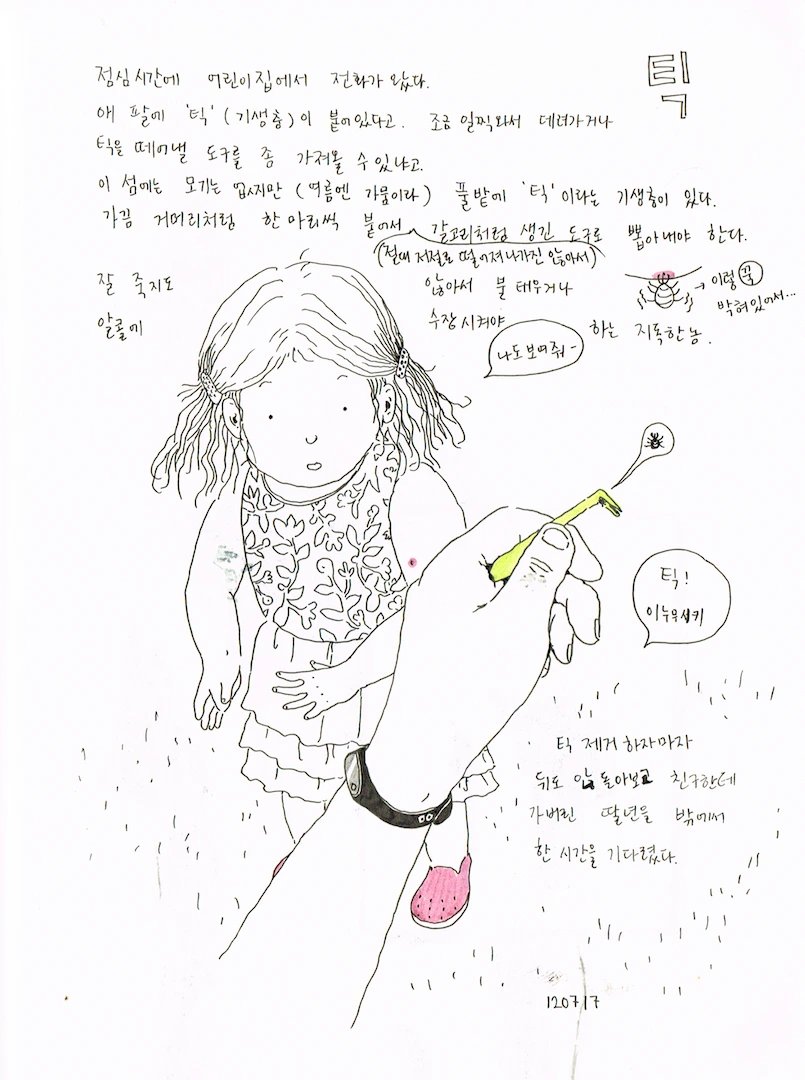 틱
점심시간에 어린이집에서 전화가 왔다.
애 팔에 '틱' (기생충)이 붙어있다고. 조금 일찍와서 데려가거나
틱을 떼어낼 도구를 좀 가져올 수 있냐고.
이 섬에는 모기는 없지만 (여름엔 가뭄이라) 풀밭에 '틱'이라는 기생충이 있다.
가끔 거머리처럼 한마리씩 붙어서 갈고리처럼 생긴 도구로 뽑아내야 한다.
(절대 저절로 떨어져나가진 않아서)
잘 죽지도 않아서 불 태우거나
알콜에 수장시켜야 하는 지독한 놈.
→ 이렇게 꾹
박혀있어서...
나도 보여줘-
틱!
이누무시키
틱 제거 하자마자
뒤도 안 돌아보고 친구한테
가버린 딸년을 밖에서
한 시간을 기다렸다.
120717